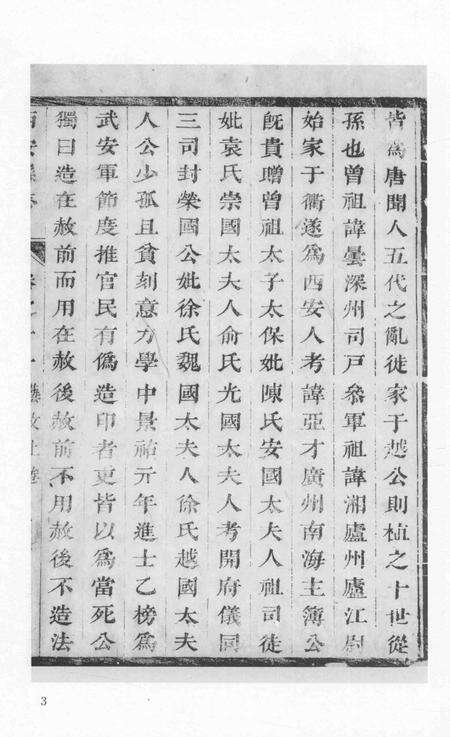 皆爲唐聞人五代之亂徙家于越公則植之十世從
孫也曾祖諱曇深州司戸叅軍祖諱湘廬州廬江尉
始家于衢遂爲西安人考諱亞才廣州南海主簿公
旣貴贈曾祖太子太保妣陳氏安國太夫人祖司徒
妣袁氏崇國太夫人俞氏光國太夫人考開府儀同
三司封榮國公妣徐氏魏國太夫人徐氏越國太夫
人公少孤且貧刻意力學中景祐元年進士乙榜爲
武安軍節度推官民有僞造印者吏皆以爲當死公
獨曰造在赦前而用在赦後赦前不用赦後不造法
3